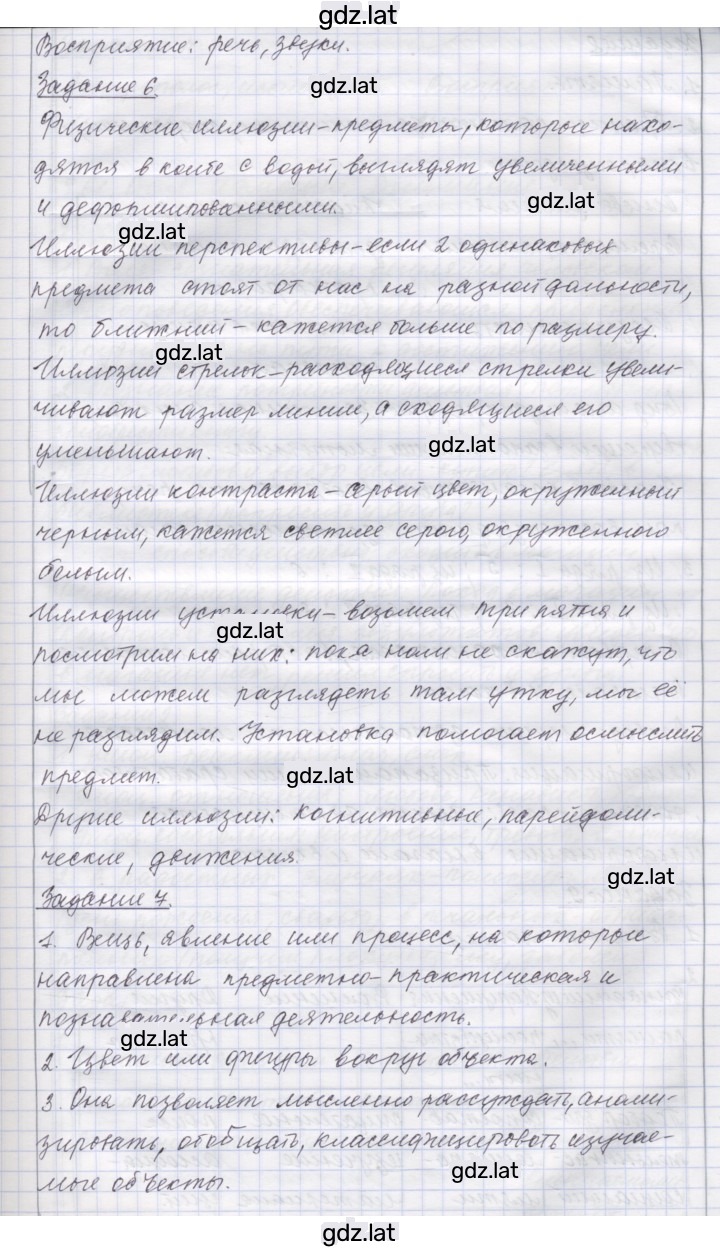 gdz.lat
Восприятие: речь, звуки.
Задание 6.
gdz.lat
Физические иллюзии-предметы, которые нахо-
дятся в колбе с водой, выглядят увеличенными
gdz.lat
и деформированными.
gdz.lat
Иллюзии перспективы-если 2 одинаковых
предмета стоят от нас на разной дальности,
то ближний - кажется больше по размеру.
gdz.lat
Иллюзии стрелок-расходящиеся стрелки увели-
чивают размер линии, а сходящиеся его
уменьшают.
gdz.lat
Иллюзии контраста-серый цвет, окруженный
черным, кажется светлее серого, окруженного
белым.
Иллюзии установки-возьмем три пятна и
gdz.lat
посмотрим на них: пока нам не скажут, что
мы можем разглядеть там утку, мы её
не разглядим. Установка помогает осмыслить
предмет.
gdz.lat
Другие иллюзии: когнитивные, парейдоли-
ческие, движения.
gdz.lat
Задание 7.
1. Вещь, явление или процесс, на которые
направлена предметно-практическая и
познавательная деятельность.
gdz.lat
2. Цвет или фигуры вокруг объекта.
3. Она позволяет мысленно рассуждать, анали-
зировать, обобщать, классифицировать изучае-
мые объекты.
gdz.lat
gdz.lat